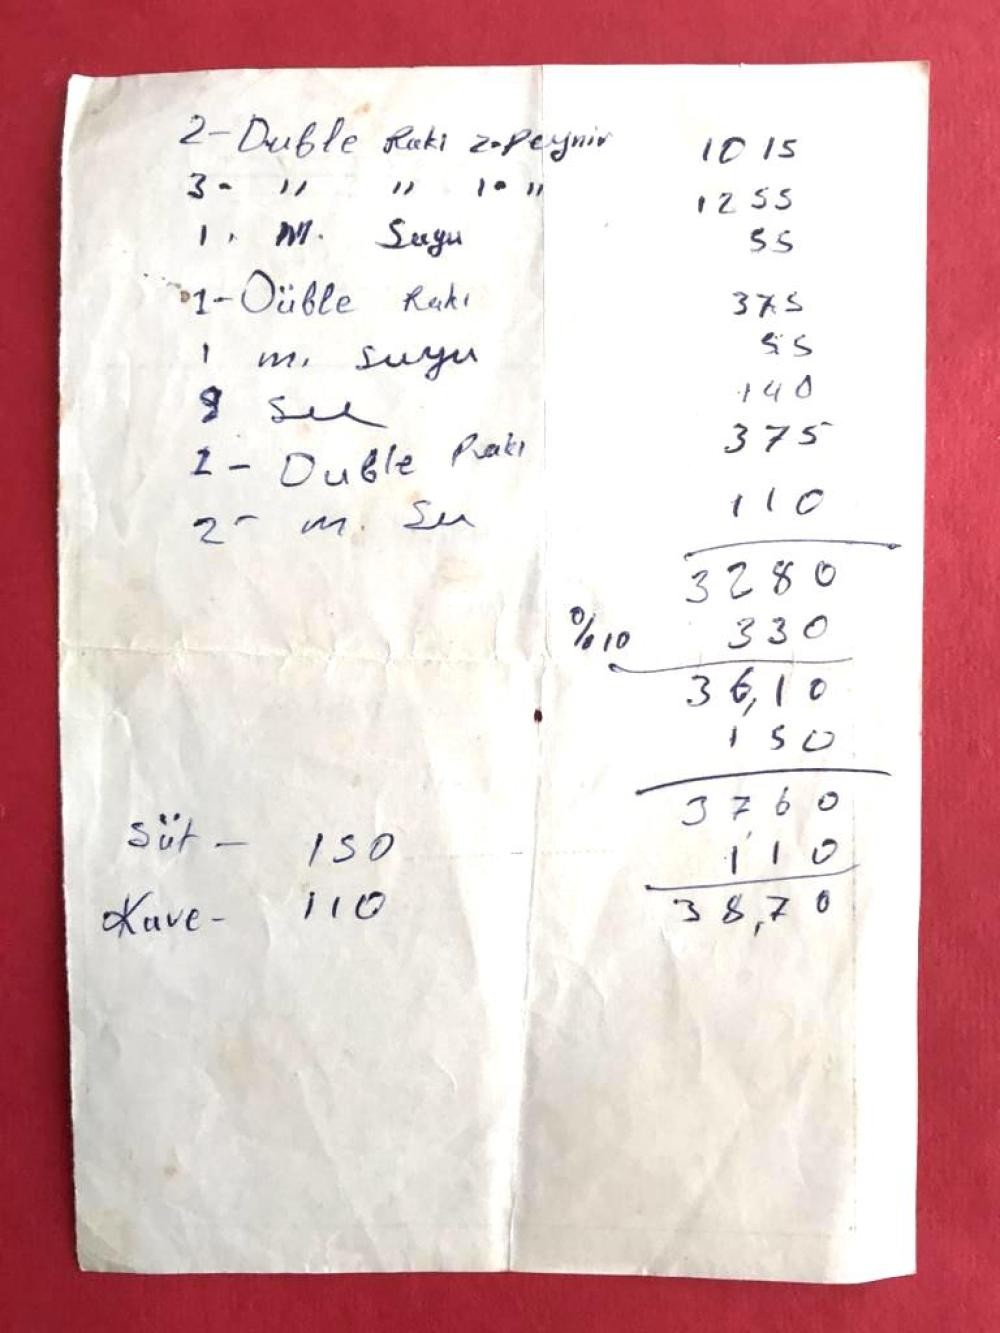 2- Duble Rakı 2. Peynir 1015
3. " " 1. " 1255
1. M. Suyu 55
1- Düble Rakı 375
1 m. suyu 55
Su 140
1- Duble Rakı 375
2- m. Su 110
3280
%10 330
36,10
150
3760
Süt - 150 110
Kave- 110 38,70